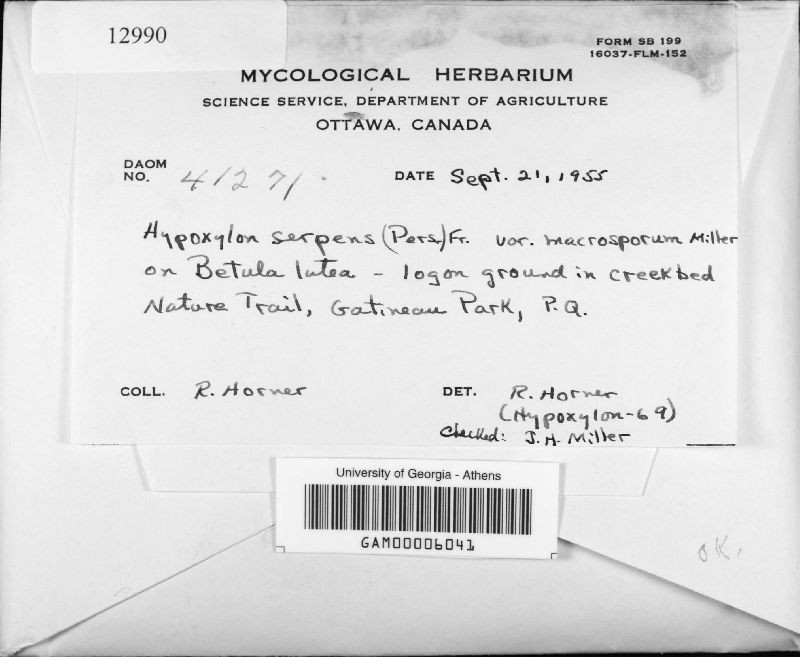 12990
FORM SB 199
16037-FLM-152
MYCOLOGICAL HERBARIUM
SCIENCE SERVICE, DEPARTMENT OF AGRICULTURE
OTTAWA, CANADA
DAOM NO. 41271. DATE Sept. 21, 1955
Hypoxylon serpens (Pers.) Fr. var. macrosporum Miller
on Betula lutea - log on ground in creek bed
Nature Trail, Gatineau Park, P.Q.
COLL. R. Horner DET. R. Horner
(Hypoxylon-69)
Checked: J.H. Miller
University of Georgia - Athens
GAM00006041
OK.